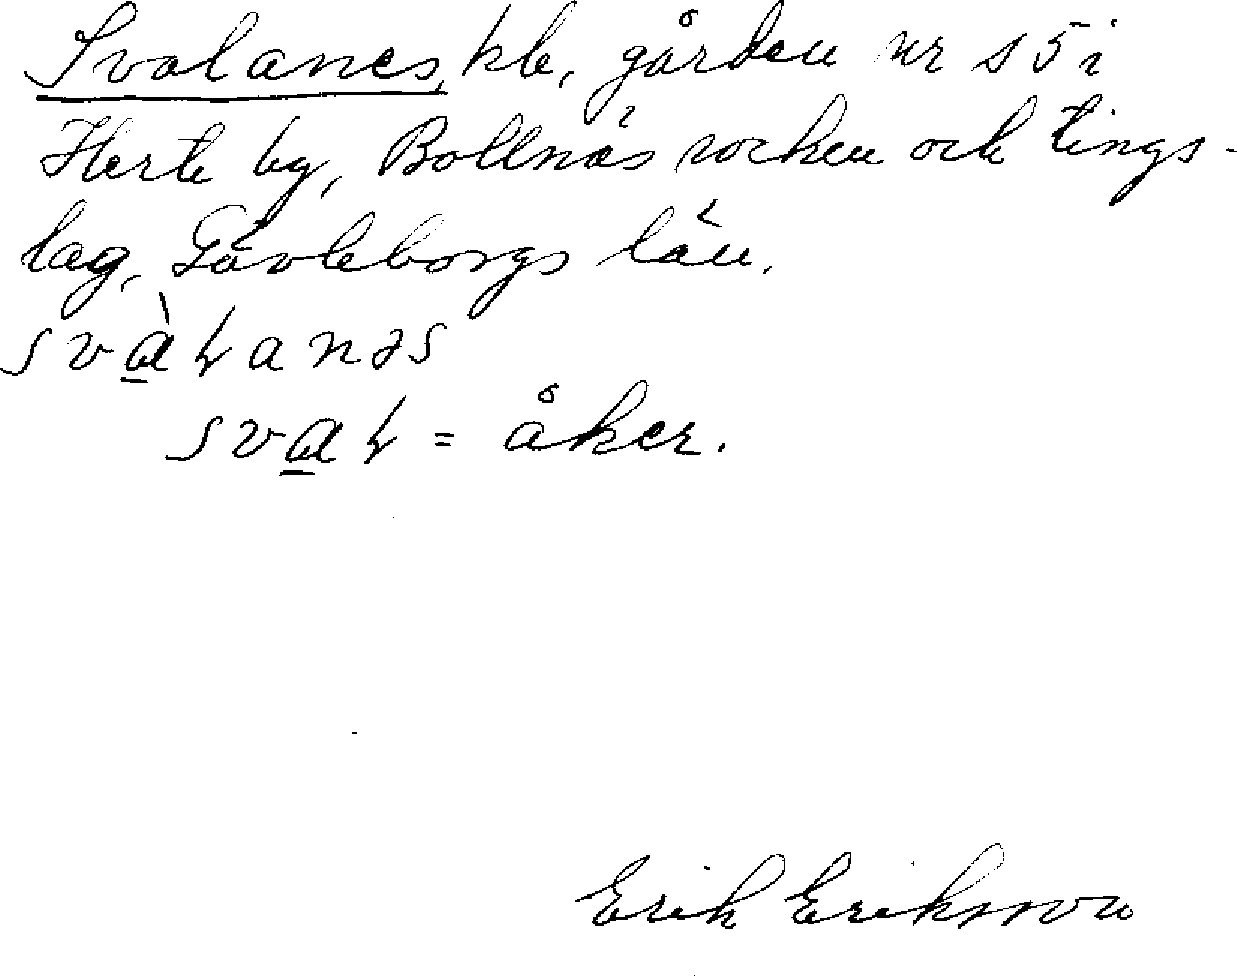 Svalanes, kb, gården nr s 5 i
Herte by, Bollnäs socken och tings-
lag, Gävleborgs län.
svàɫanəs
svaɫ = åker.
Erik Eriksson